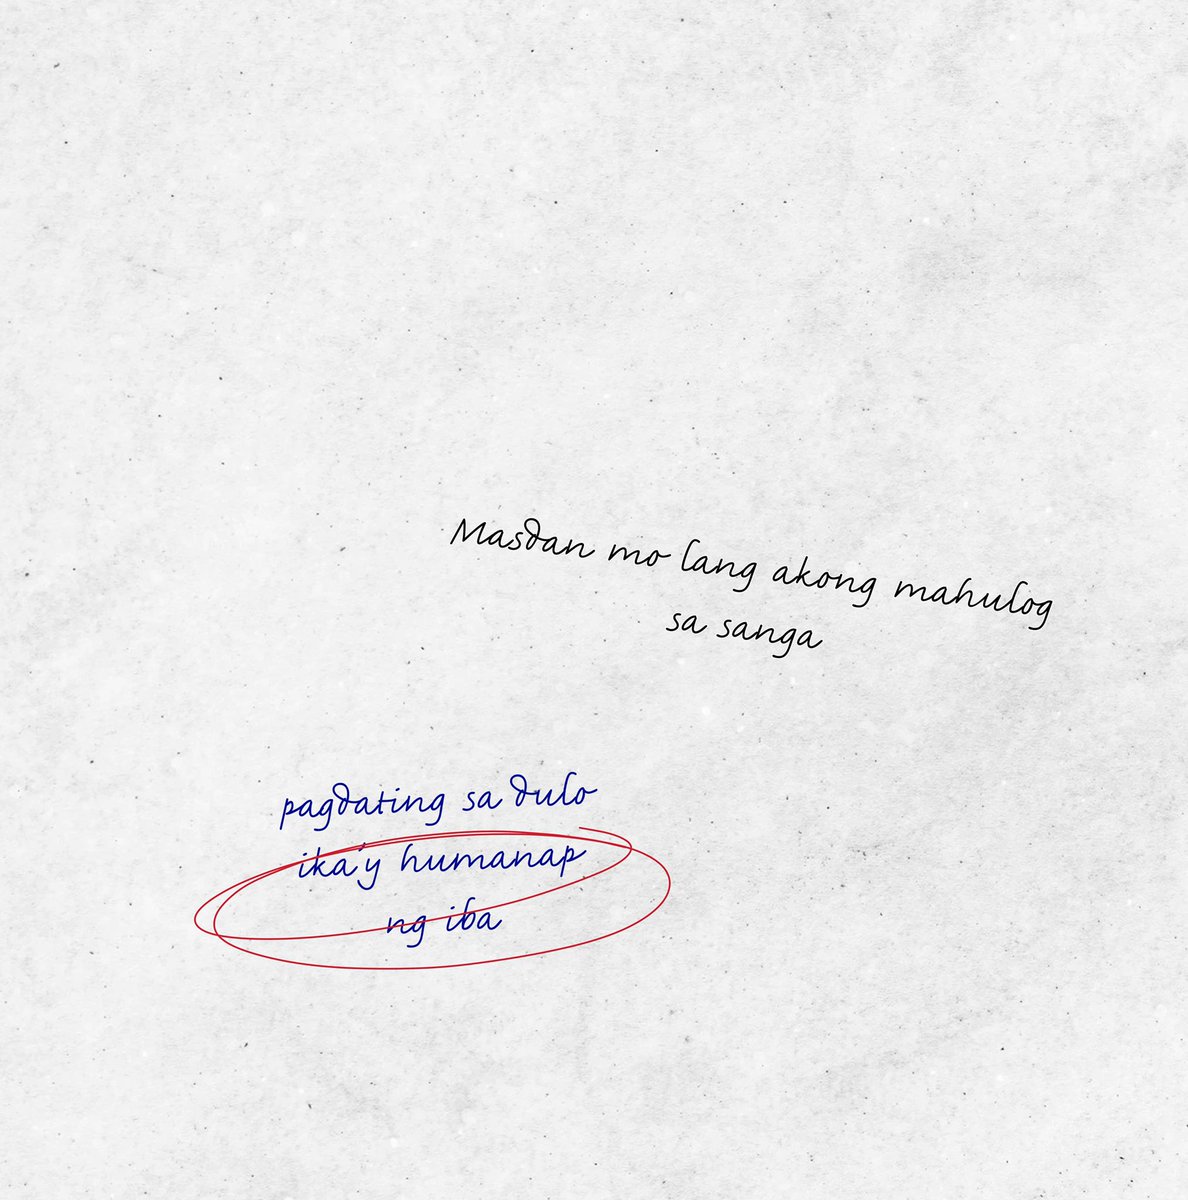 Masdan mo lang akong mahulog
sa sanga
pagdating sa dulo
ika'y humanap
ng iba